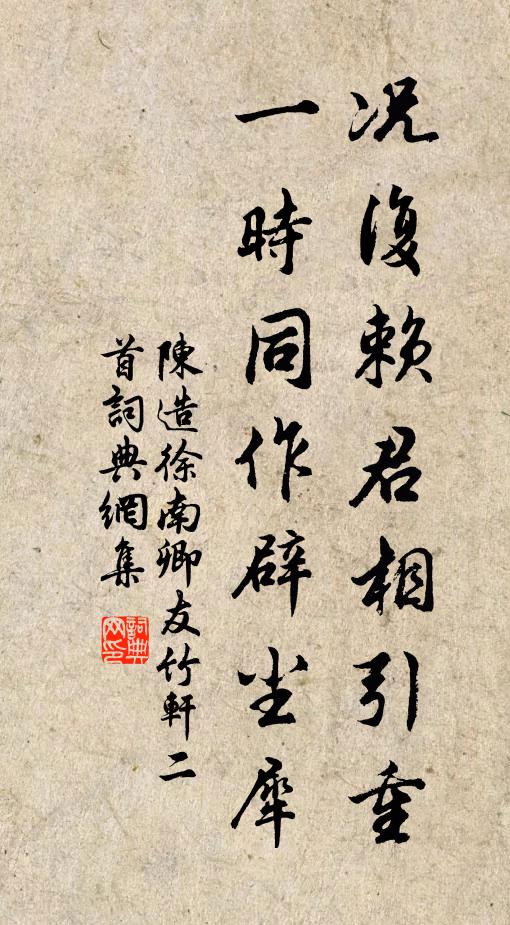 况復赖君相引重
一時同作辟尘犀
陳造徐南卿友竹軒二
首詞典網集
詞典
网印